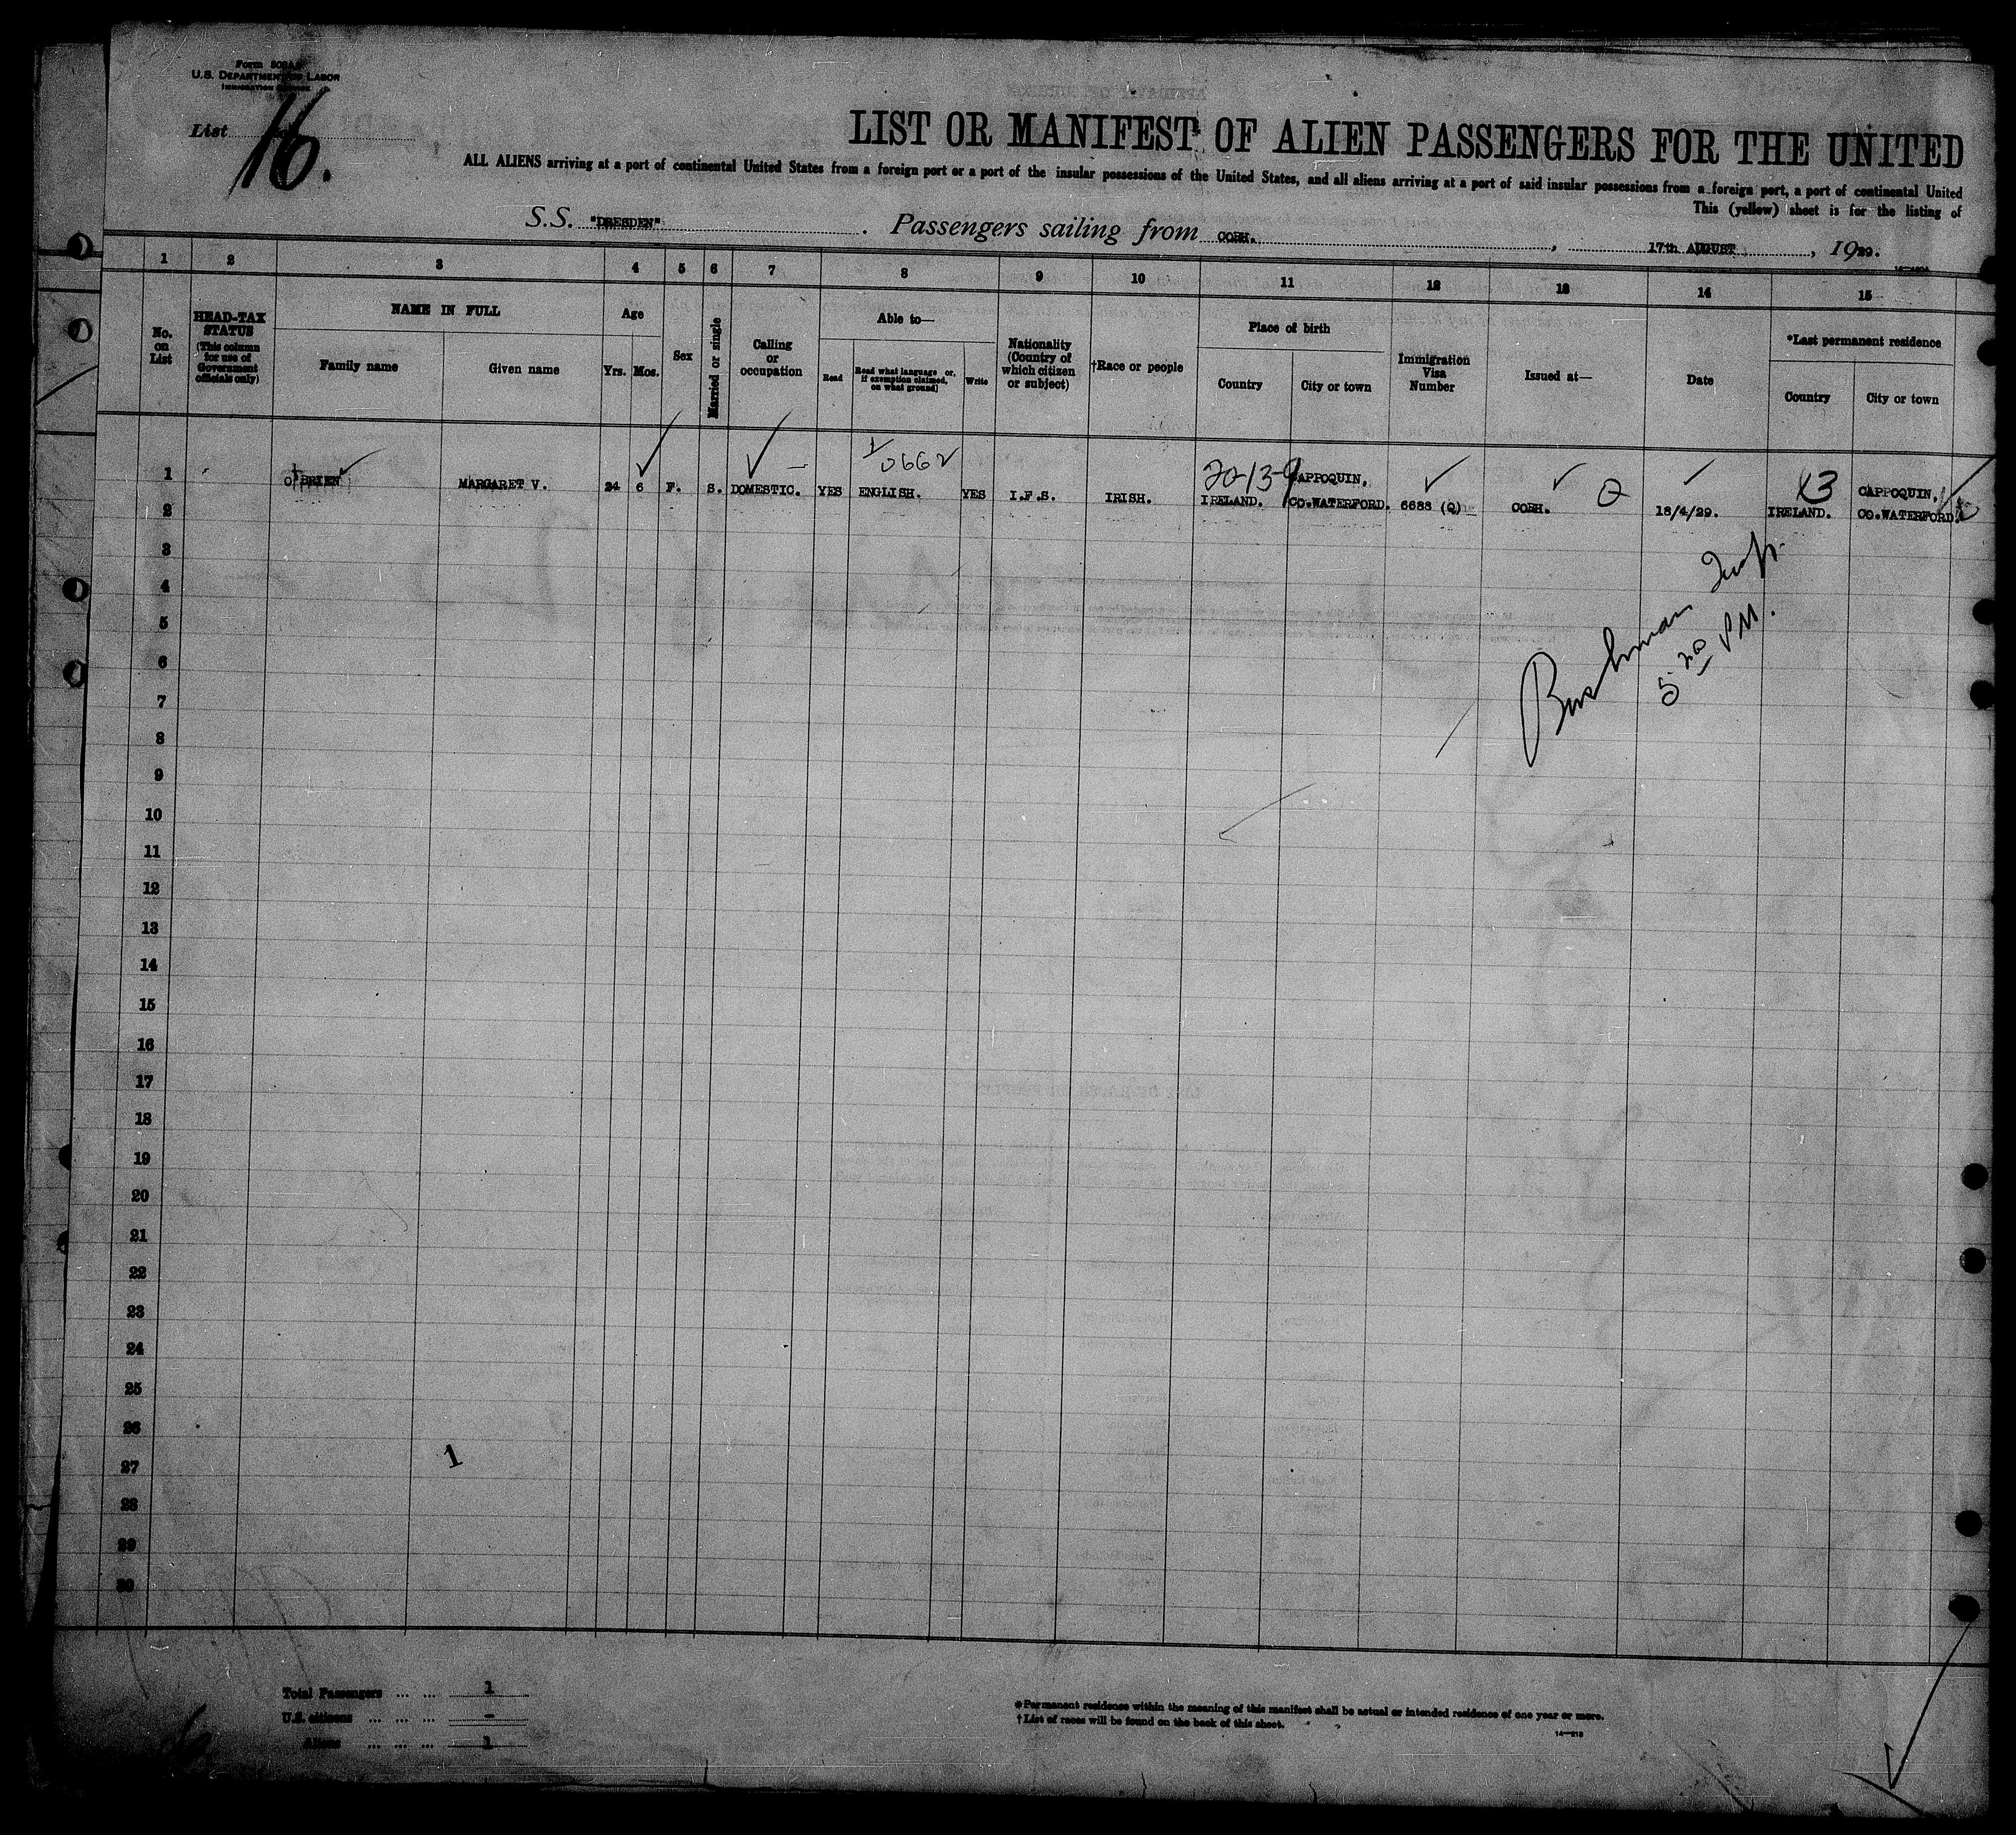 U.S. DEPARTMENT OF LABOR
IMMIGRATION SERVICE
List 16.
LIST OR MANIFEST OF ALIEN PASSENGERS FOR THE UNITED
ALL ALIENS arriving at a port of continental United States from a foreign port or a port of the insular possessions of the United States, and all aliens arriving at a port of said insular possessions from a foreign port, a port of continental United
This (yellow) sheet is for the listing of
S.S. "DRESDEN" Passengers sailing from COBH. , 17th AUGUST , 1929.
1 2 3 4 5 6 7 8 9 10 11 12 13 14 15
No. on List
HEAD-TAX STATUS
(This column for use of Government officials only)
NAME IN FULL
Family name
Given name
Age
Yrs. Mos.
Sex
Married or single
Calling or occupation
Able to—
Read
Read what language or, if exemption claimed, on what ground
Write
Nationality (Country of which citizen or subject)
†Race or people
Place of birth
Country
City or town
Immigration Visa Number
Issued at—
Date
*Last permanent residence
Country
City or town
1 O'BRIEN MARGARET V. 24 6 F. S. DOMESTIC. YES ENGLISH. YES I.F.S. IRISH. IRELAND. CAPPOQUIN, CO.WATERFORD. 6688 (Q) COBH. Q 18/4/29. IRELAND. CAPPOQUIN, CO.WATERFORD.
20-13-9
13
2
3
4
5
6
7
8
9
10
11
12
13
14
15
16
17
18
19
20
21
22
23
24
25
26
27
28
29
30
5 20 PM.
1
Total Passengers ... ... 1
U.S. citizens ... ... ... -
Aliens ... ... ... 1
*Permanent residence within the meaning of this manifest shall be actual or intended residence of one year or more.
†List of races will be found on the back of this sheet.